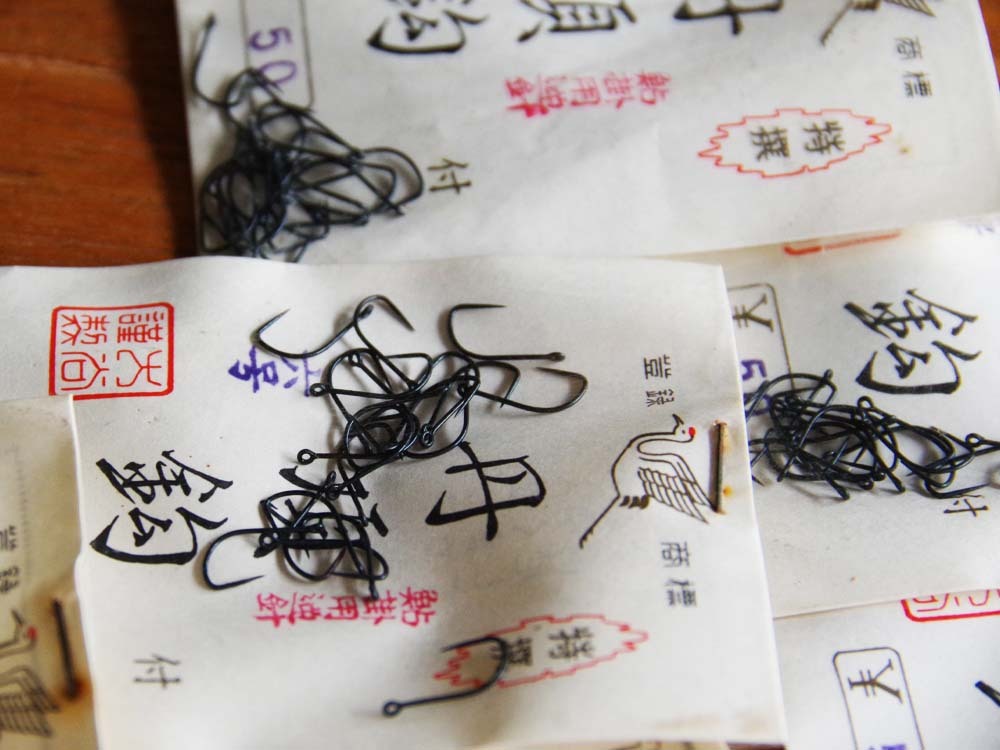 商標
特撰
丹頂鈎
鮎掛用逆針
50
付
登録
商標
特撰
丹頂鈎
鮎掛用逆針
六号
謹製
付
鈎
¥
5
付
¥
登録